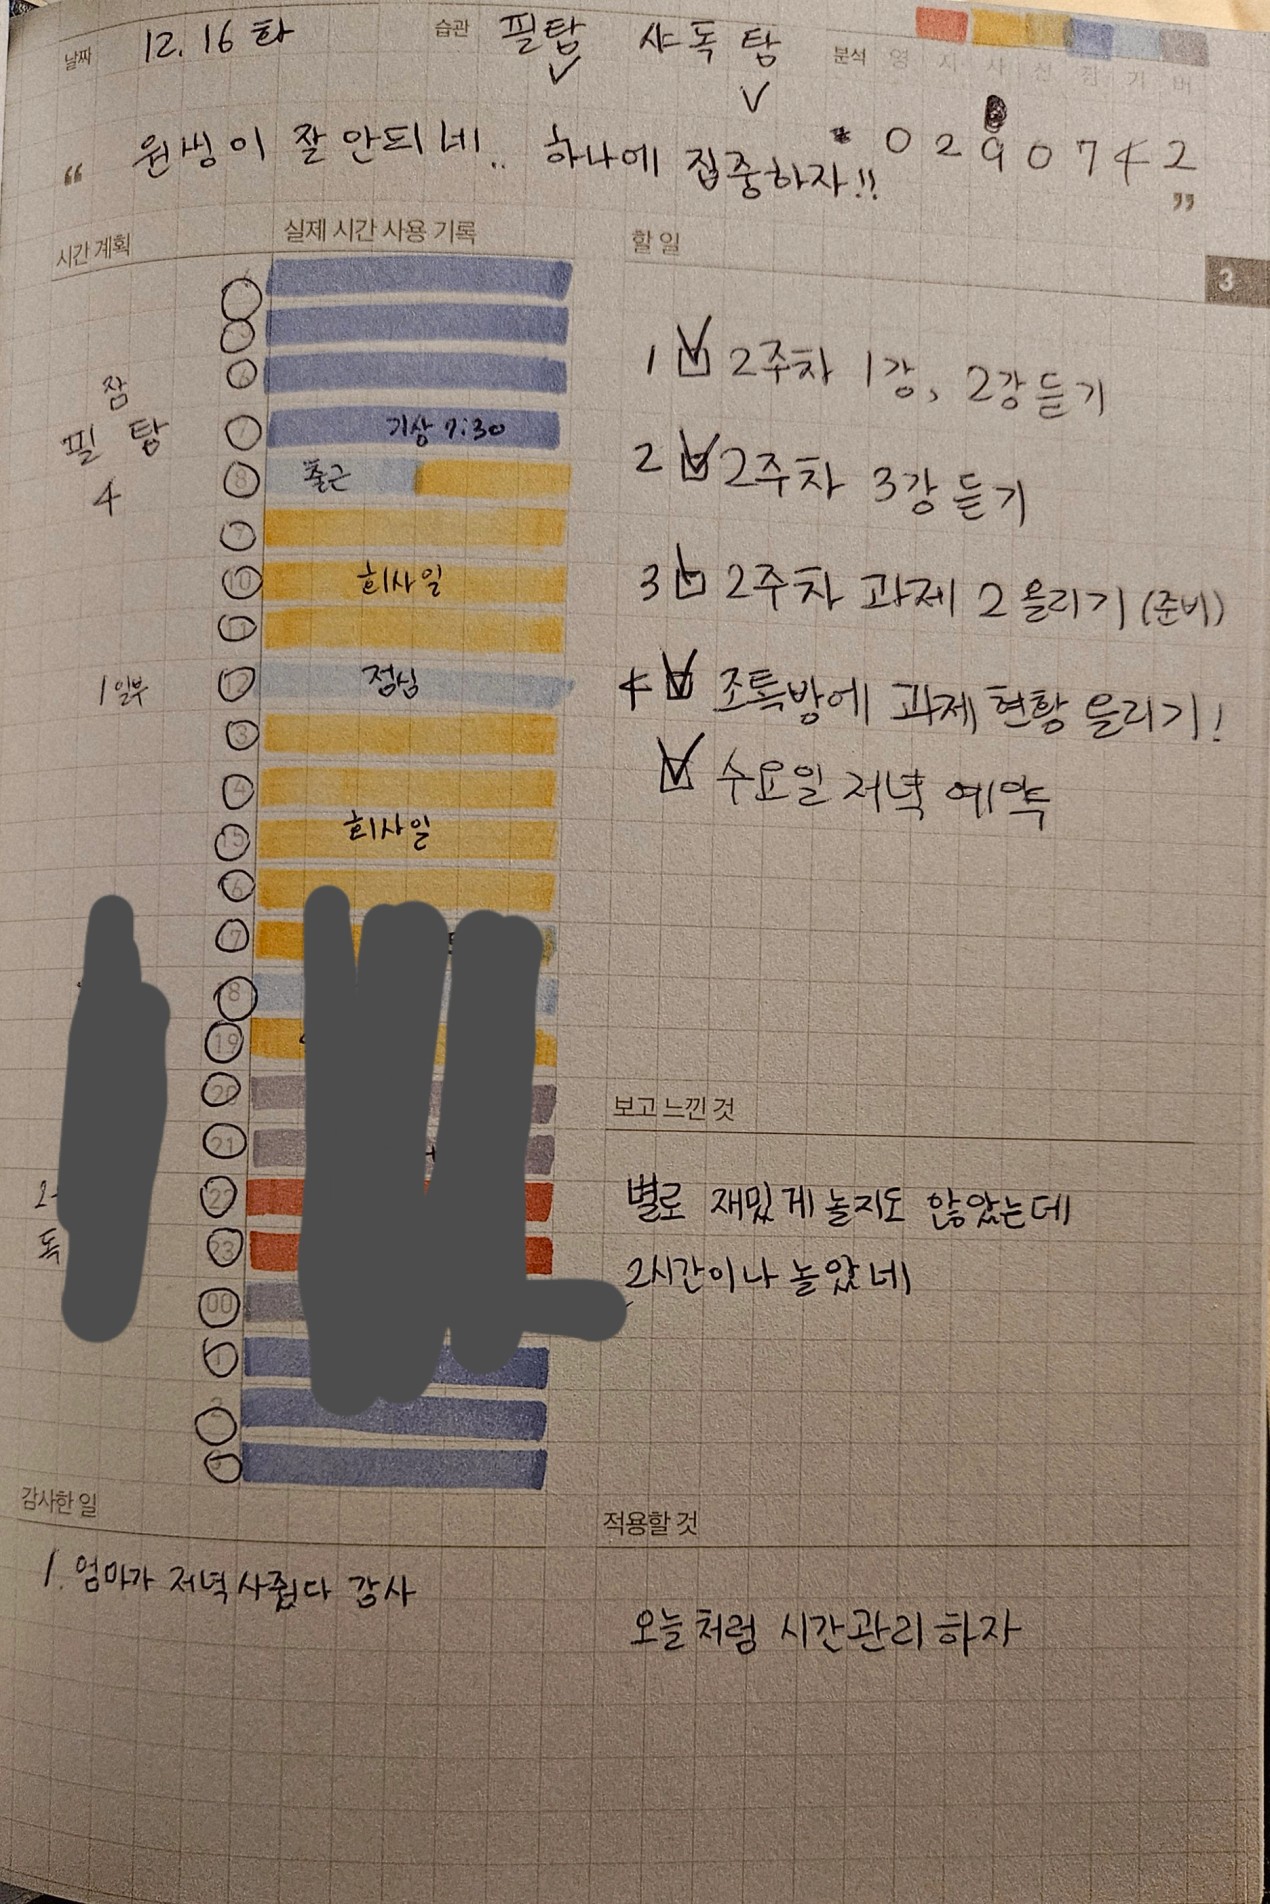 날짜 12.16 화 습관 필탐 샤독 탐 분석 영 지 사 신 정 기 버
0 2 9 0 7 4 2
“ 원씽이 잘 안되네.. 하나에 집중하자!! ”
시간 계획
잠
필 탐
4
1일부
2
독
실제 시간 사용 기록
6
7 기상 7:30
8 출근
10 회사일
11
12 점심
3
4
15 회사일
16
17
18
19
20
21
22
23
00
1
2
3
할 일
3
1 2주차 1강, 2강 듣기
2 2주차 3강 듣기
3 2주차 과제 2 올리기 (준비)
4 조톡방에 과제 현황 올리기!
수요일 저녁 예약
보고 느낀 것
별로 재밌게 놀지도 않았는데
2시간이나 놀았네
감사한 일
1. 엄마가 저녁 사줬다 감사
적용할 것
오늘처럼 시간관리 하자